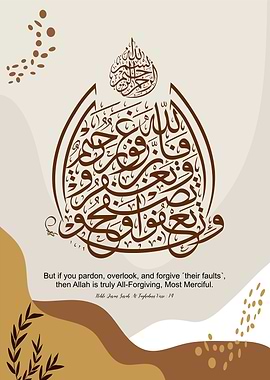 بسم الله الرحمن الرحيم
وإن تعفوا وتصفحوا وتغفروا فإن الله غفور رحيم
But if you pardon, overlook, and forgive ˹their faults˺,
then Allah is truly All-Forgiving, Most Merciful.
Quran Surah At Taghabun Verse : 14